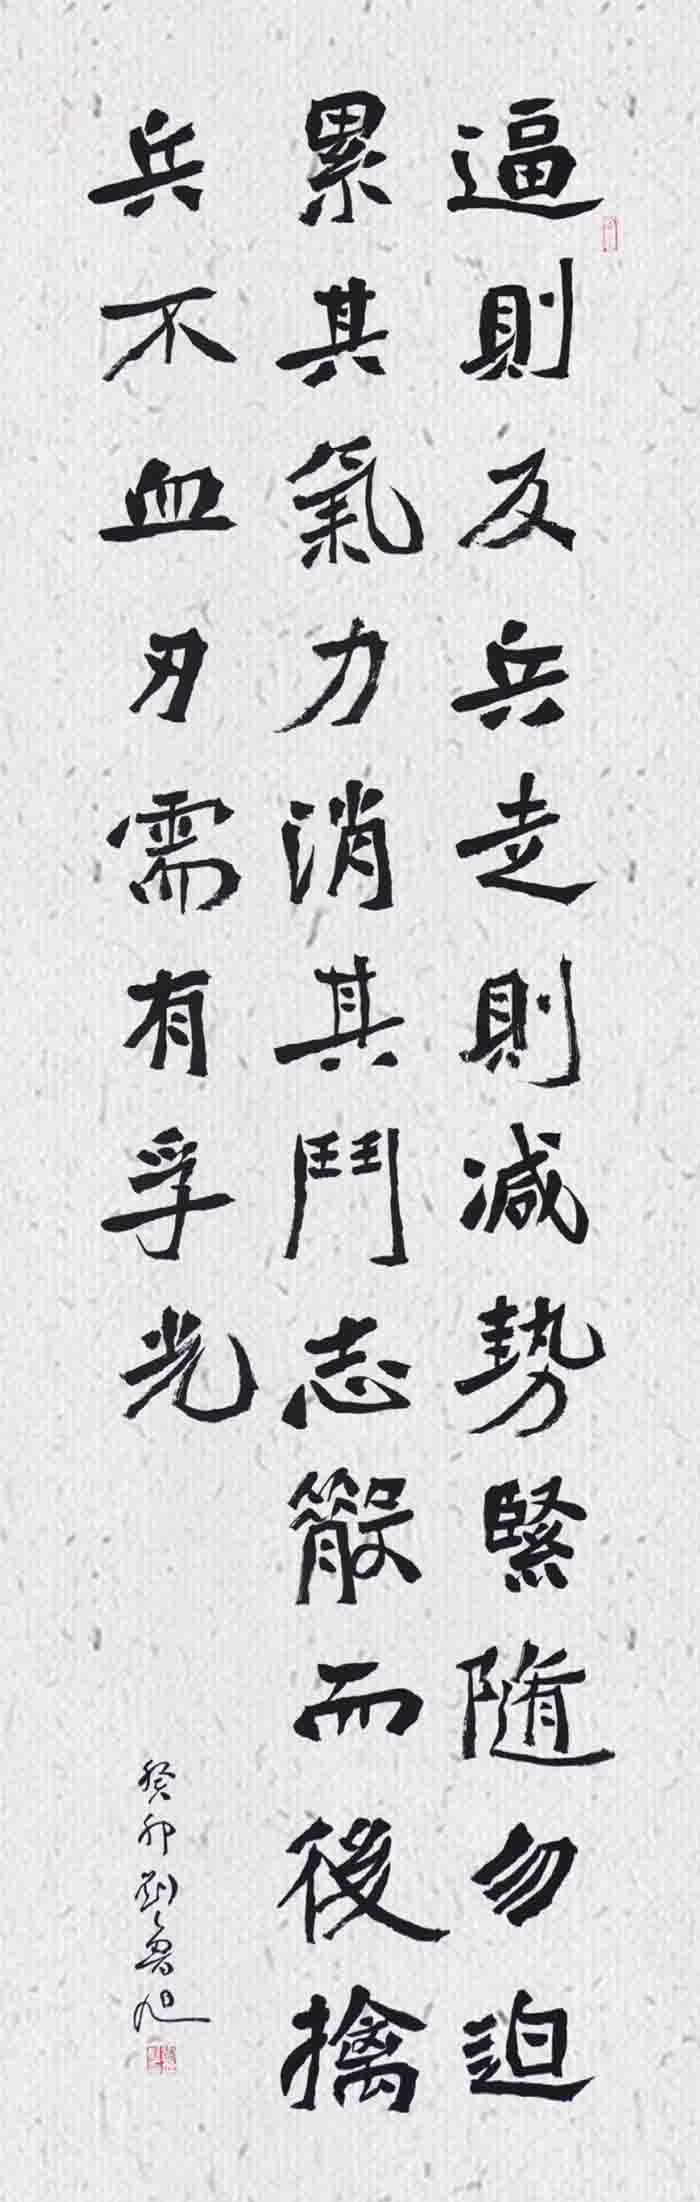 逼則反兵走則減勢緊隨勿迫
累其氣力消其鬥志散而後擒
兵不血刃需有孚光
癸卯劉魯旭